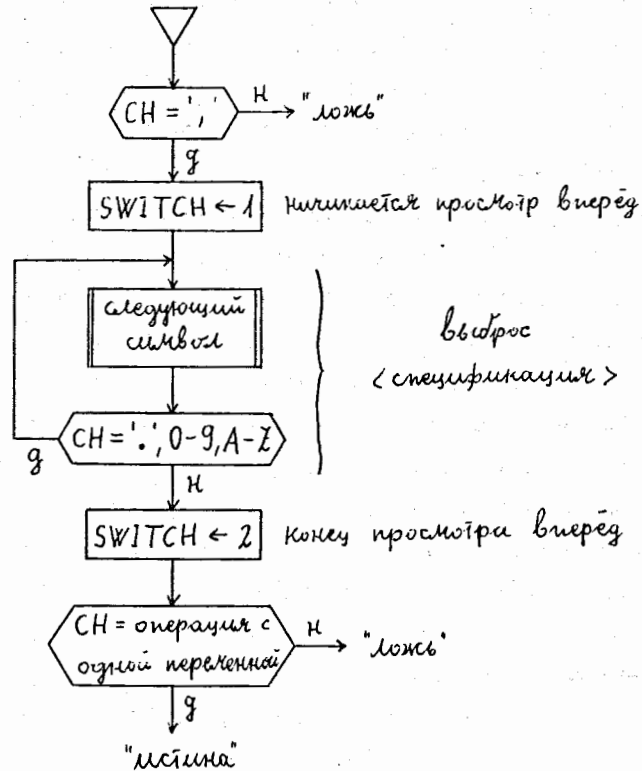 CH = ','
н
"ложь"
д
SWITCH ← 1
начинается просмотр вперёд
следующий
символ
выброс
<спецификация>
CH = '.', 0-9, A-Z
д
н
SWITCH ← 2
конец просмотра вперёд
CH = операция с
одной переменной
н
"ложь"
д
"истина"